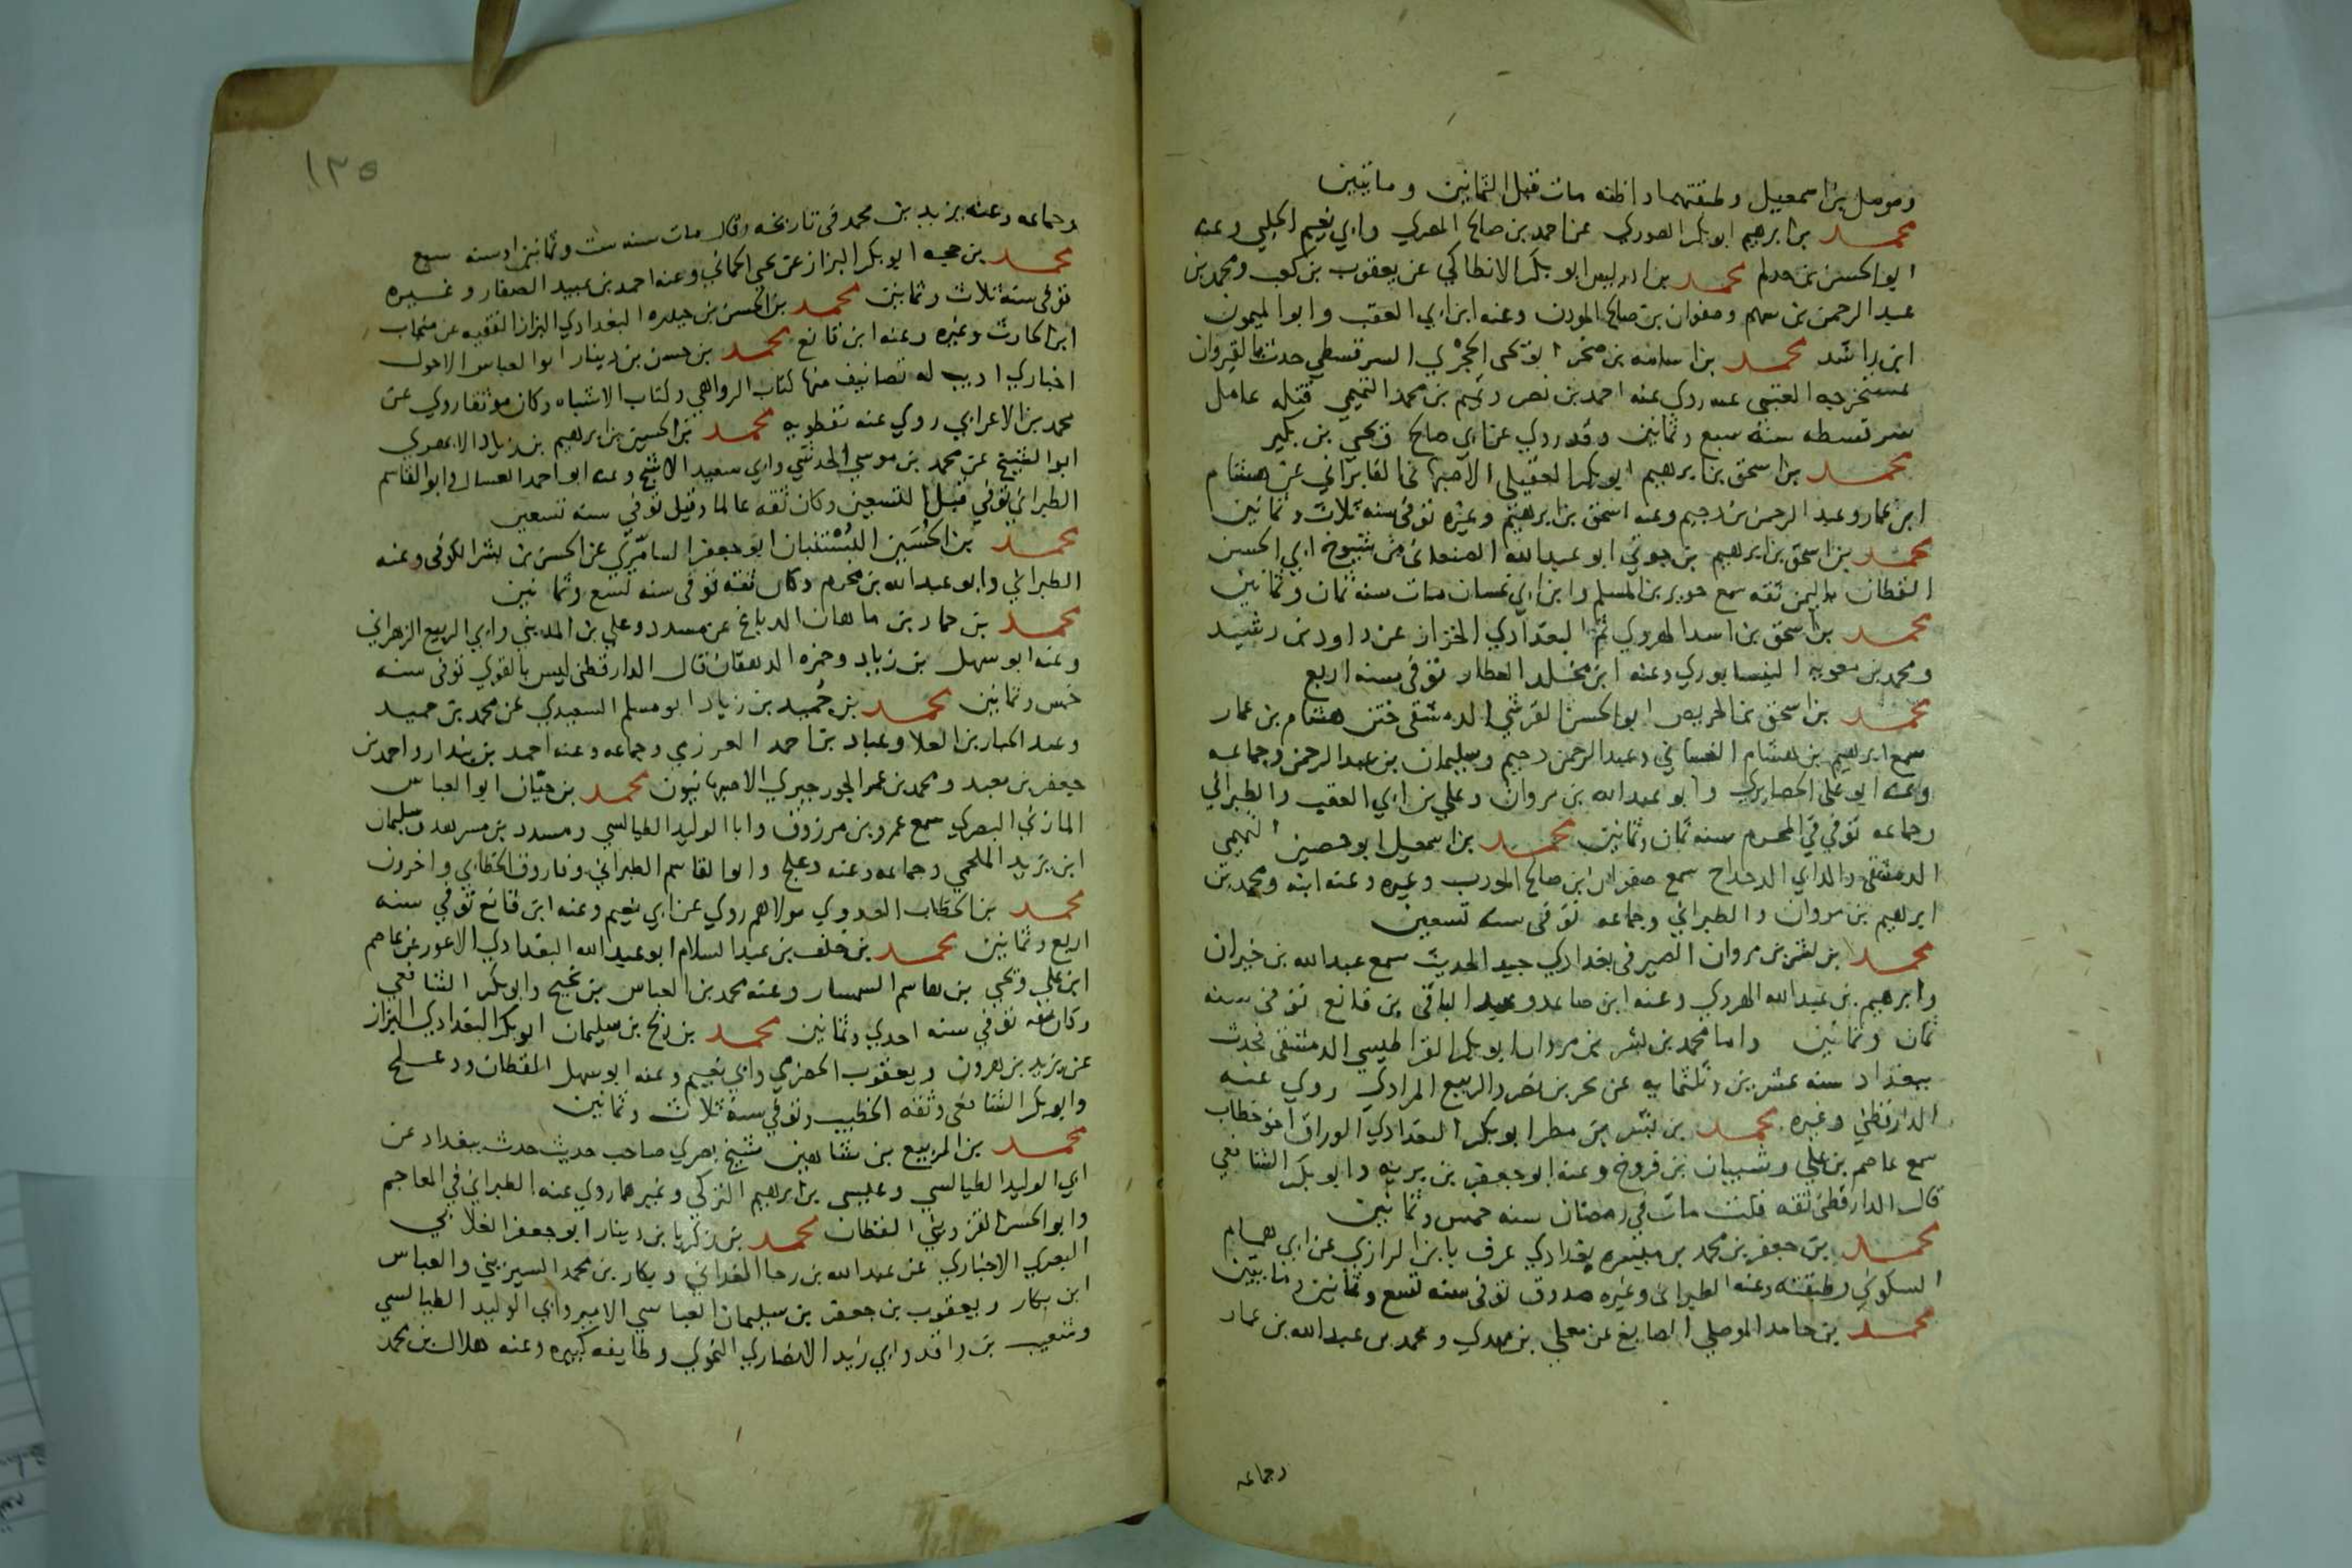 ومومل بن اسمعيل وطبقتهما واظنه مات قبل الثمانين وماتيين
محمد بن ابرهيم ابو بكر الصوري عن احمد بن صالح المصري وابي نعيم الحلبي وعنه
ابو الحسن بن حدلم محمد بن ادريس ابو بكر الانطاكي عن يعقوب بن كعب ومحمد بن
عبد الرحمن بن سهم وصفوان بن صالح الموذن وعنه ابن ابي العقب وابو الميمون
ابن راشد محمد بن اسامه بن صخر ابو يحيى الحجري السرقسطي حدث بالقيروان
بمستخرجه العتبى عنه روي عنه احمد بن نصر وتميم بن محمد التميمي قتله عامل
سرقسطه سنة سبع وثمانين وقد روي عن ابي صالح ويحيى بن بكير
محمد بن اسحق بن ابرهيم ابو بكر العقيلي الاصبهاني الفابزاني عن هشام
ابن عمار وعبد الرحمن بن دحيم وعنه اسحق بن ابرهيم وغيره توفي سنه ثلاث وثمانين
محمد بن اسحق بن ابرهيم بن جوتي ابو عبد الله الصنعاني من شيوخ ابي الحسن
القطان باليمن ثقه سمع جرير بن المسلم وابن ابي غسان مات سنه ثمان وثمانين
محمد بن اسحق بن اسد الهروي ثم البغدادي الخزاز عن داود بن رشيد
ومحمد بن معويه النيسابوري وعنه ابن مخلد العطار توفي سنه اربع
محمد بن اسحق بن الحريص ابو الحسن القرشي الدمشقي ختن هشام بن عمار
سمع ابرهيم بن هشام الغساني وعبد الرحمن دحيم وسليمان بن عبد الرحمن وجماعه
وعنه ابو علي الحصايري وابو عبد الله بن مروان وعلي بن ابي العقب والطبراني
وجماعه توفي في المحرم سنه ثمان وثمانين محمد بن اسمعيل ابو حصين التميمي
الدمشقي والد ابي الدحداح سمع صفوان ابن صالح الموذن وغيره وعنه ابنه ومحمد بن
ابرهيم بن مروان والطبراني وجماعه توفي سنه تسعين
محمد بن بشر بن مروان الصيرفي بغدادي جيد الحديث سمع عبد الله بن خيران
وابرهيم بن عبد الله الهروي وعنه ابن صاعد وعبد الباقي بن قانع توفي سنه
ثمان وثمانين واما محمد بن بشر بن مروان ابو بكر القراطيسي الدمشقي فحدث
ببغداد سنه عشرين وثلثمايه عن بحر بن نصر والربيع المرادي روي عنه
الدارقطني وغيره محمد بن بشر بن مطر ابو بكر البغدادي الوراق اخو خطاب
سمع عاصم بن علي وشيبان بن فروخ وعنه ابو جعفر بن بريه وابو بكر الشافعي
قال الدارقطني ثقه قلت مات في رمضان سنه خمس وثمانين
محمد بن جعفر بن محمد بن ميسره بغدادي عرف بابن الرازي عن ابي همام
السكوني وطبقته وعنه الطبراني وغيره صدوق توفي سنه تسع وثمانين وماتيين
محمد بن حامد الموصلي الصايغ عن معلي بن مهدي ومحمد بن عبد الله بن عمار
وجماعه
١٣٥
وجماعه وعنه يزيد بن محمد في تاريخه وقال مات سنه ست وثمانين او سنه سبع
محمد بن حبه ابو بكر البزاز عن يحيى الحماني وعنه احمد بن عبيد الصفار وغيره
توفي سنه ثلاث وثمانين محمد بن الحسن بن حيدره البغدادي البزاز الفقيه عن منجاب
ابن الحارث وغيره وعنه ابن قانع محمد بن حسن بن دينار ابو العباس الاحول
اخباري اديب له تصانيف منها كتاب الدواهي وكتاب الاشباه وكان موثقا روي عن
محمد بن الاعرابي روي عنه نفطويه محمد بن الحسين بن ابرهيم بن زياد الابهري
ابو الشيخ عن محمد بن موسي الحرشي وابي سعيد الاشج وعنه ابو احمد العسال وابو القاسم
الطبراني توفي قبل التسعين وكان ثقه عالما وقيل توفي سنه تسعين
محمد بن الحسين البستنبان ابو جعفر السامري عن الحسن بن بشر الكوفي وعنه
الطبراني وابو عبد الله بن محرم وكان ثقه توفي سنه تسع وثمانين
محمد بن حماد بن ماهان الدباغ عن مسدد وعلي بن المديني وابي الربيع الزهراني
وعنه ابو سهل بن زياد وحمزه الدهقان قال الدارقطني ليس بالقوي توفي سنه
خمس وثمانين محمد بن حميد بن زياد ابو مسلم السعيدي عن محمد بن حميد
وعبد الجبار بن العلا وعباد بن احمد العرزمي وجماعه وعنه احمد بن بندار واحمد بن
جعفر بن معبد ومحمد بن عمر الجورجيري الاصبهانيون محمد بن حيان ابو العباس
المازني البصري سمع عمرو بن مرزوق وابا الوليد الطيالسي ومسدد بن مسرهد وسليمان
ابن يزيد الملحمي وجماعه وعنه دعلج وابو القاسم الطبراني وفاروق الخطابي واخرون
محمد بن الخطاب العدوي مولاهم روي عن ابي نعيم وعنه ابن قانع توفي سنه
اربع وثمانين محمد بن خلف بن عبد السلام ابو عبد الله البغدادي الاعور عن عاصم
ابن علي ويحيى بن هاشم السمسار وعنه محمد بن العباس بن نجيح وابو بكر الشافعي
وكان ثقه توفي سنه احدي وثمانين محمد بن ربح بن سليمان ابو بكر البغدادي البزاز
عن يزيد بن هرون ويعقوب الحضرمي وابي نعيم وعنه ابو سهل القطان ودعلج
وابو بكر الشافعي وثقه الخطيب وتوفي سنة ثلاث وثمانين
محمد بن الربيع بن شاهين شيخ بصري صاحب حديث حدث ببغداد عن
ابي الوليد الطيالسي وعيسى بن ابرهيم البركي وغيرهما روي عنه الطبراني في المعاجم
وابو الحسن القزويني القطان محمد بن زكريا بن دينار ابو جعفر الغلابي
البصري الاخباري عن عبد الله بن رجا الغداني وبكار بن محمد السيريني والعباس
ابن بكار ويعقوب بن جعفر بن سليمان العباسي الامير وابي الوليد الطيالسي
وشعيب بن واقد وابي زيد الانصاري النحوي وطايفه كبيره وعنه هلال بن محمد